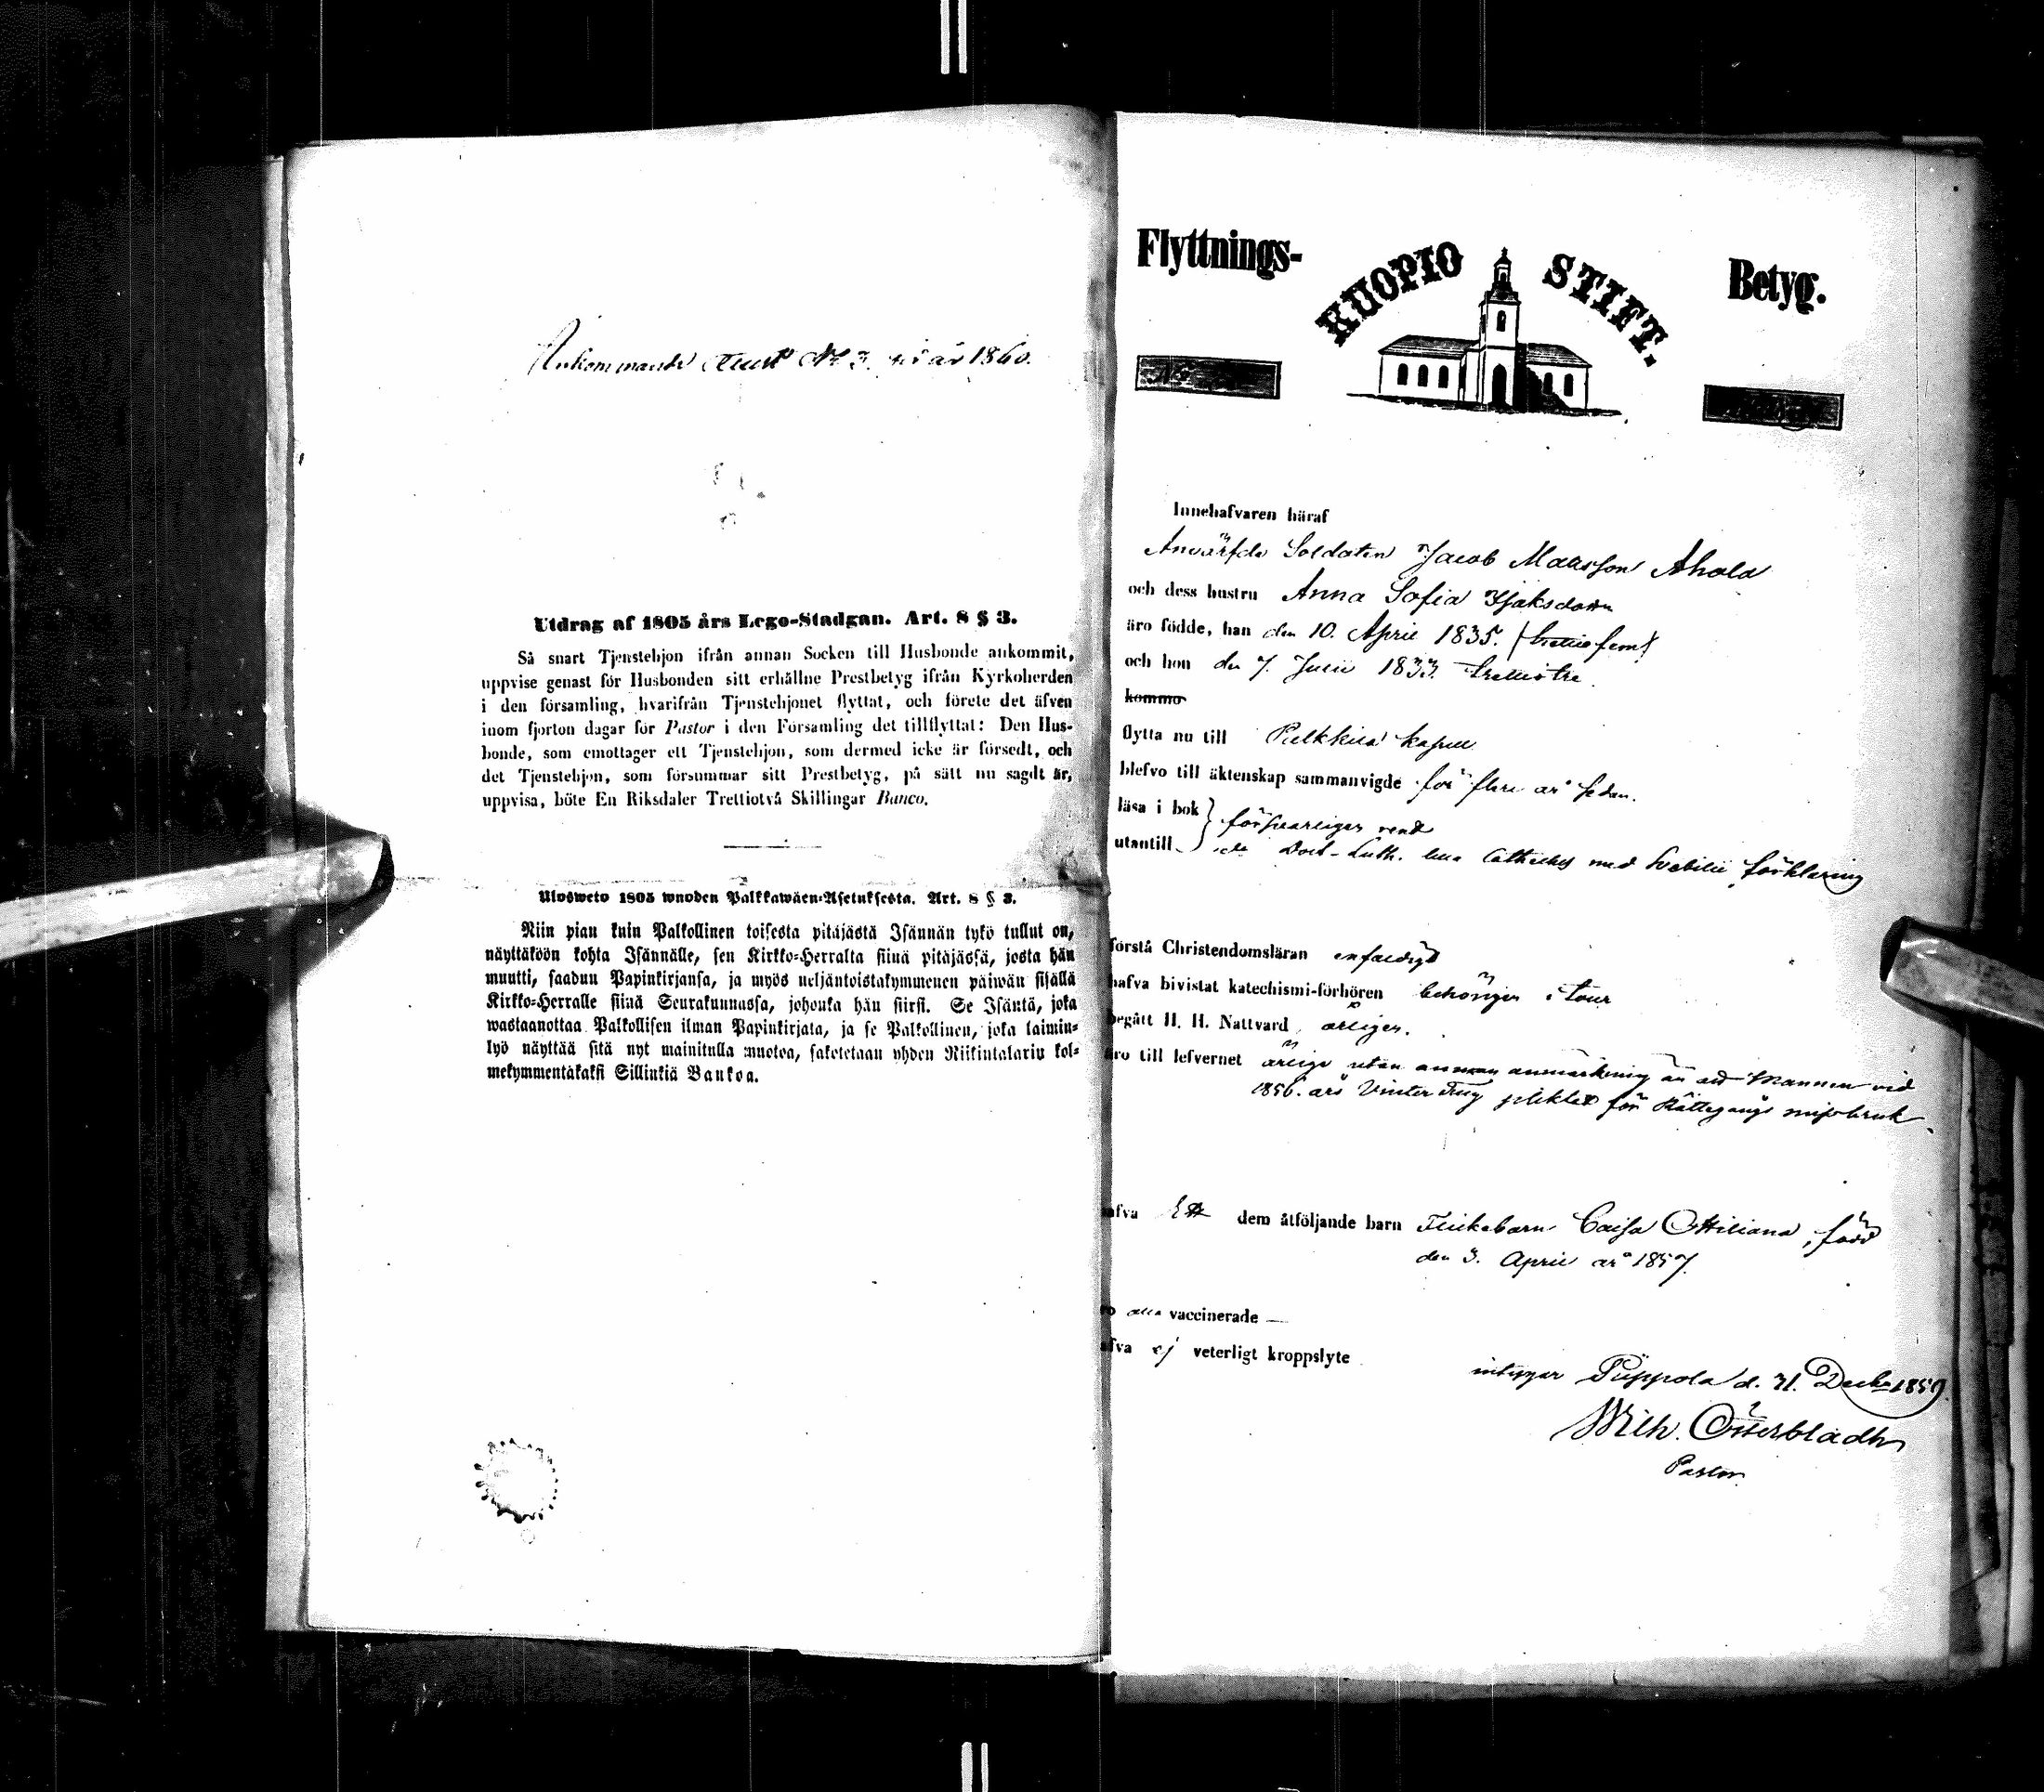 Ankommande Attest № 3. år 1860.
Utdrag af 1805 års Lego-Stadgan. Art. 8 § 3.
Så snart Tjenstehjon ifrån annan Socken till Husbonde ankommit,
uppvise genast för Husbonden sitt erhållne Prestbetyg ifrån Kyrkoherden
i den församling, hvarifrån Tjenstehjonet flyttat, och förete det äfven
inom fjorton dagar för Pastor i den Församling det tillflyttat: Den Hus-
bonde, som emottager ett Tjenstehjon, som dermed icke är försedt, och
det Tjenstehjon, som försummar sitt Prestbetyg, på sätt nu sagdt är,
uppvisa, böte En Riksdaler Trettiotvå Skillingar Banco.
Ulosweto 1805 wuoden Palkkawäen-Asetuksesta. Art. 8 § 3.
Niin pian kuin Palkollinen toisesta pitäjästä Isännän tykö tullut on,
näyttäköön kohta Isännälle, sen Kirkko-Herralta siinä pitäjässä, josta hän
muutti, saadun Papinkirjansa, ja myös neljäntoistakymmenen päiwän sisällä
Kirkko-Herralle siinä Seurakunnassa, johonka hän siirsi. Se Isäntä, joka
wastaanottaa Palkollisen ilman Papinkirjata, ja se Palkollinen, joka laimin-
lyö näyttää sitä nyt mainitulla muotoa, saketetaan yhden Riikintalariu kol-
mekymmentäkaksi Sillinkiä Bankoa.
Flyttnings- KUOPIO STIFT. Betyg.
Innehafvaren häraf
Anvärfde Soldaten Jacob Matsson Ahola
och dess hustru Anna Sofia Isaksdotter
äro födde, han den 10. April 1835. (trettiofem)
och hon den 7. Juni 1833. trettiotre.
kommo
flytta nu till Pulkkila kapell
blefvo till äktenskap sammanvigde för flere år sedan.
läsa i bok försvarligen rent
utantill Doct. Luth. lilla Catheches med Svebilii förklaring
förstå Christendomsläran enfaldigt
hafva bivistat katechismi-förhören behörigen
begått H. H. Nattvard årligen.
äro till lefvernet ärliga utan annan anmärkning än att Mannen vid
1856. års Vinter Ting pliktat för Rättegångs missbruk.
afva Ett dem åtföljande barn Flickebarn Caisa Ottiliana, född
den 3. April år 1857.
o alla vaccinerade —
afva ej veterligt kroppslyte
intygar Piippola d. 31. Decbr 1859.
Wilh. Österbladh
Pastor.